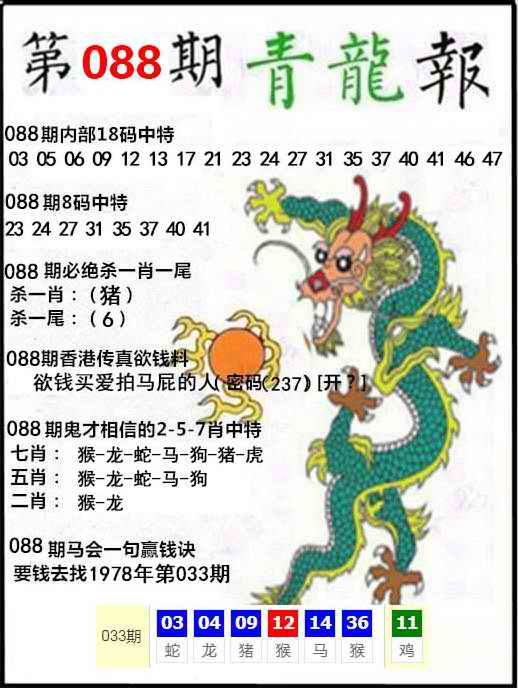 第088期青龍報
088期内部18码中特
03 05 06 09 12 13 17 21 23 24 27 31 35 37 40 41 46 47
088期8码中特
23 24 27 31 35 37 40 41
088 期必绝杀一肖一尾
杀一肖：（猪）
杀一尾：（6）
088期香港传真欲钱料
欲钱买爱拍马屁的人(密码(237)[开？]
088期鬼才相信的2-5-7肖中特
七肖： 猴-龙-蛇-马-狗-猪-虎
五肖： 猴-龙-蛇-马-狗
二肖： 猴-龙
088 期马会一句赢钱诀
要钱去找1978年第033期
033期 03 04 09 12 14 36 11
蛇 龙 猪 猴 马 猴 鸡